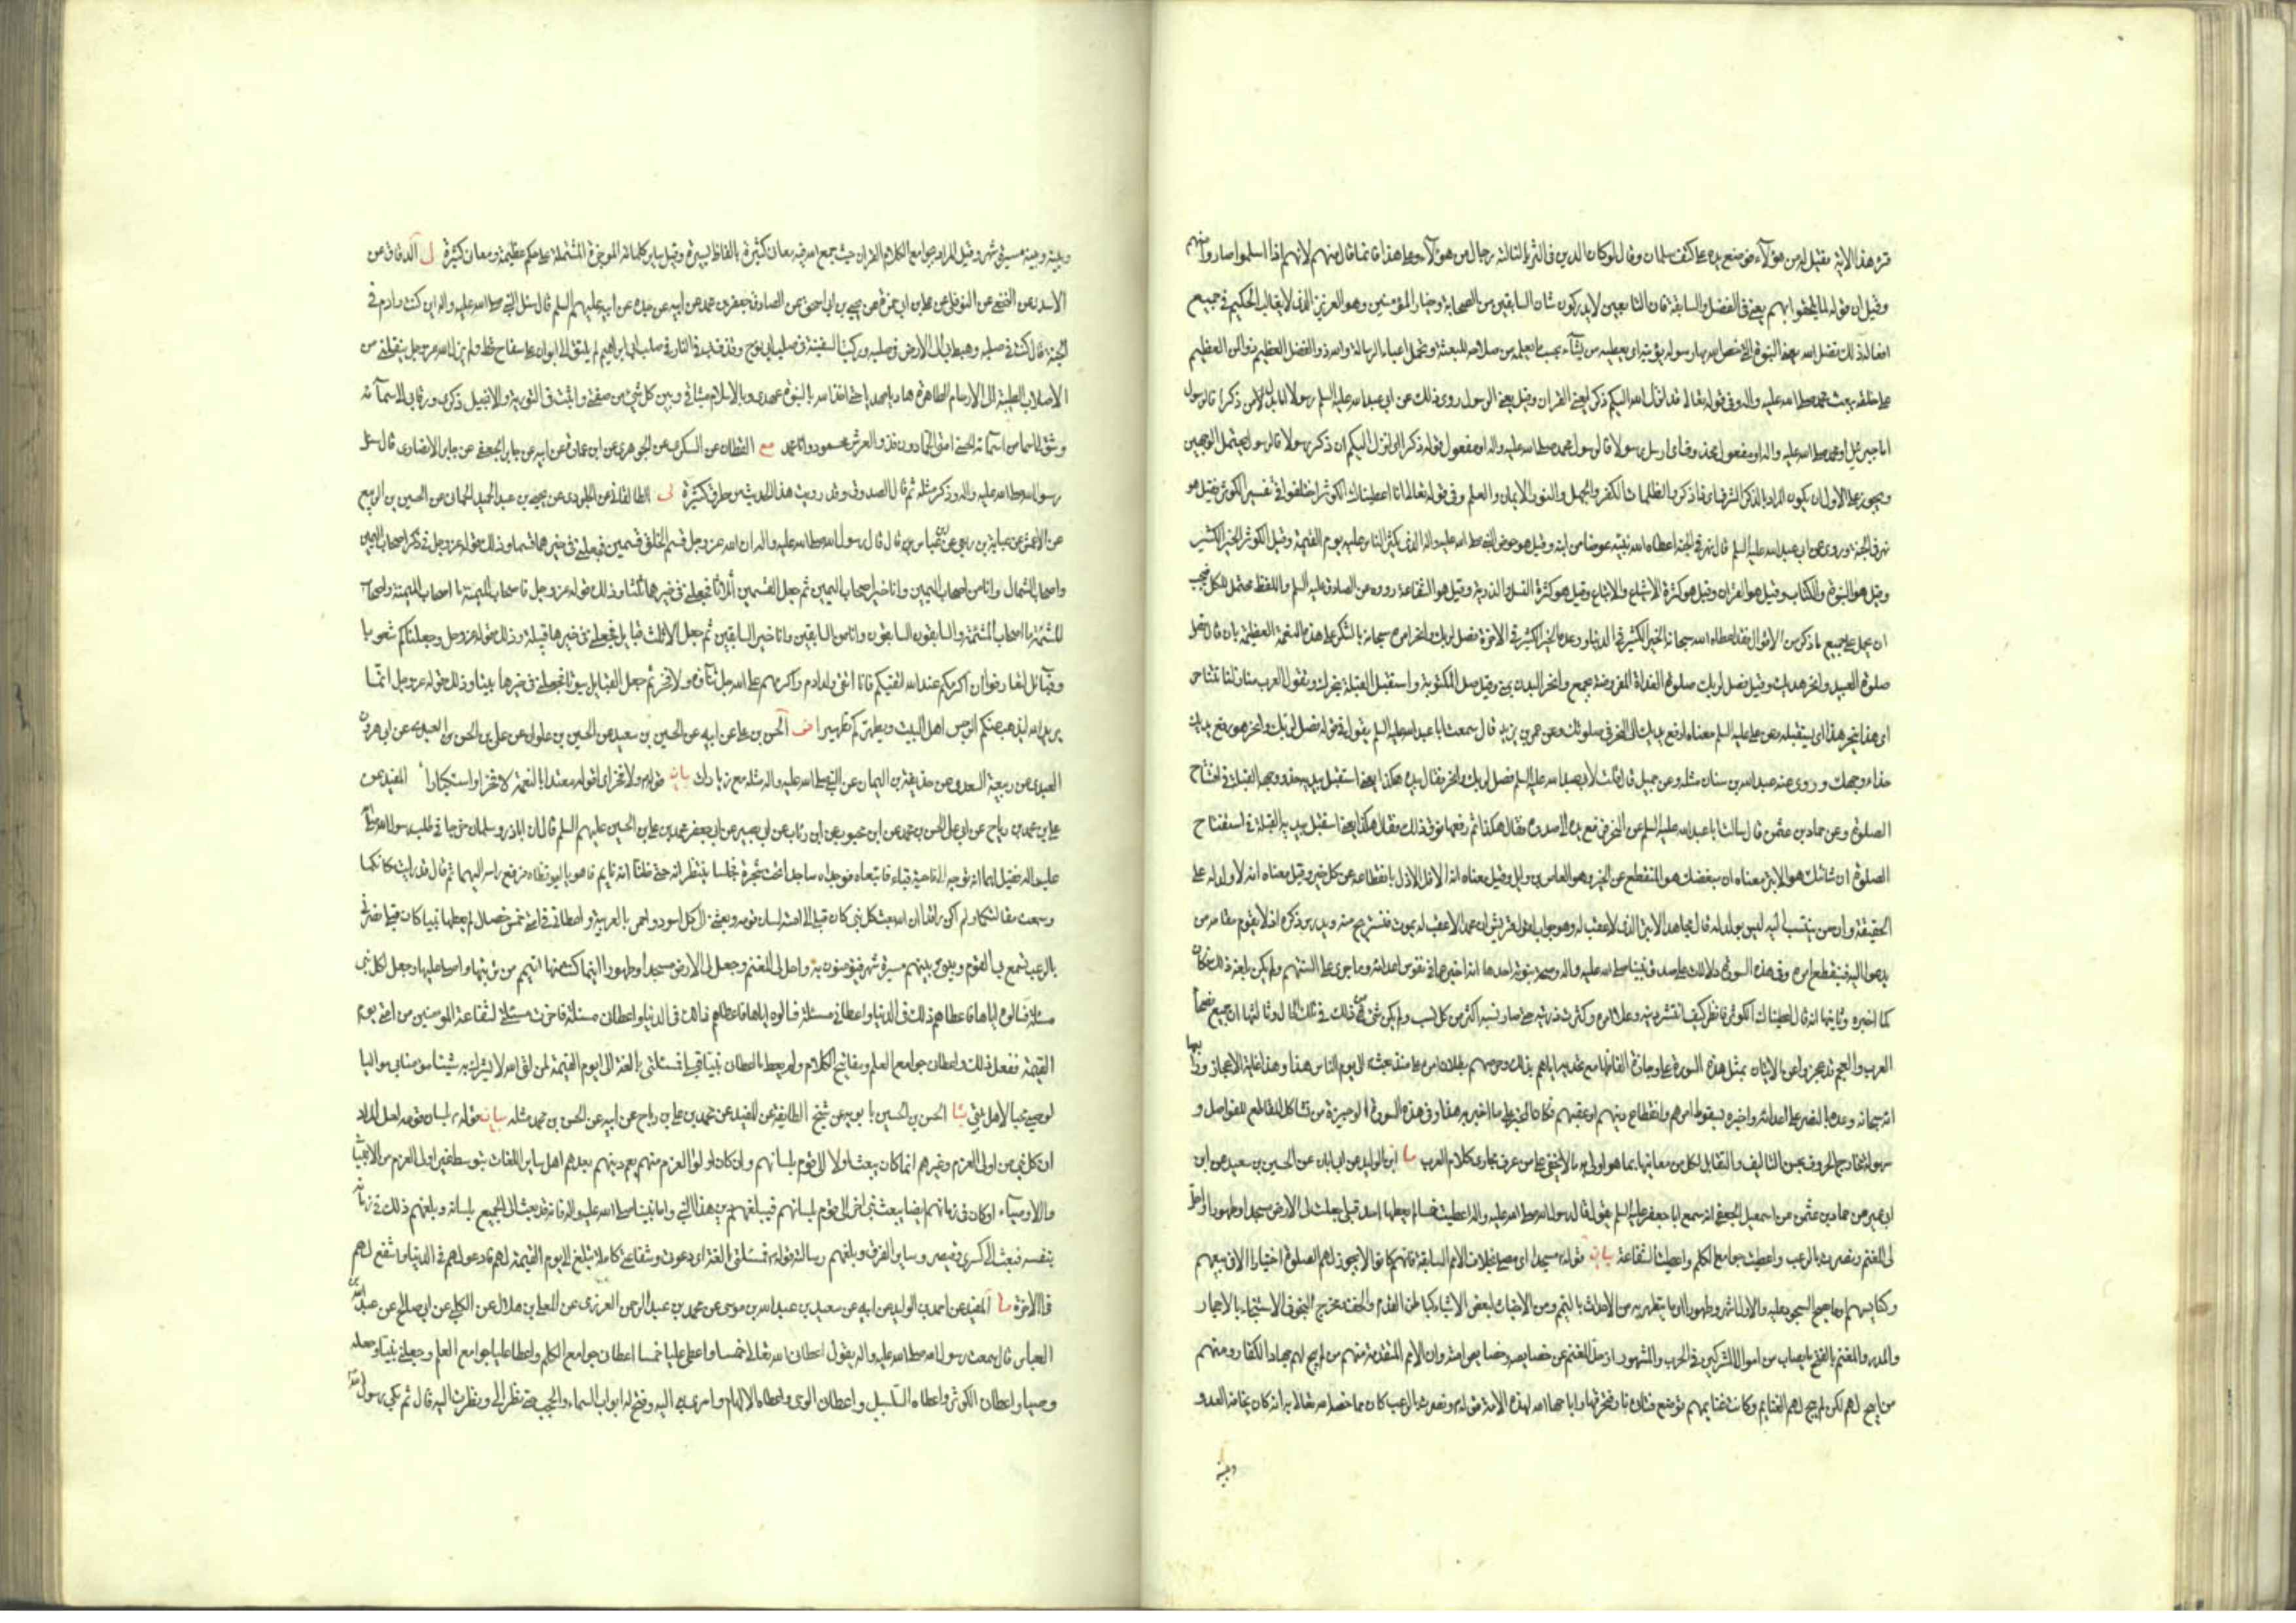 قرء هذه الاية فقيل له من هؤلآء فوضع يده على كتف سلمان وقال لو كان الدين في الثريا لنالته رجال من هؤلآء وعلى هذا فانما قال منهم لانهم اذا اسلموا صاروا منهم
وقيل ان قوله لما يلحقوا بهم يعني في الفضل والسابقة فان التابعين لا يدركون شان السابقين من الصحابة وخيار المؤمنين وهو العزيز الذي لا يغالب الحكيم في جميع
افعاله ذلك فضل الله يعني النبوة التي خص الله بها رسوله يؤتيه اي يعطيه من يشآء بحسب ما يعلمه من صلاحه للبعثة وتحمل اعباء الرسالة والله ذو الفضل العظيم ذو المن العظيم
على خلقه ببعث محمد صلى الله عليه واله وفي قوله تعالى قد انزل الله اليكم ذكرا يعني القران وقيل يعني الرسول روي ذلك عن ابي عبد الله عليه السلم رسولا اما بدل من ذكرا فالرسول
اما جبرئيل او محمد صلى الله عليه واله او مفعول محذوف اي ارسل رسولا فالرسول محمد صلى الله عليه واله او مفعول قوله ذكرا اي انزل اليكم ان ذكر رسولا فالرسول يحتمل الوجهين
ويجوز على الاول ان يكون المراد بالذكر الشرف اي ذا ذكر والظلمات الكفر والجهل والنور الايمان والعلم وفي قوله تعالى انا اعطيناك الكوثر اختلفوا في تفسير الكوثر فقيل هو
نهر في الجنة وروي عن ابي عبد الله عليه السلم قال نهر في الجنة اعطاه الله نبيه عوضا من ابنه وقيل هو حوض النبي صلى الله عليه واله الذي يكثر الناس عليه يوم القيمة وقيل الكوثر الخير الكثير
وقيل هو النبوة والكتاب وقيل هو القران وقيل هو كثرة الاشياع والاتباع وقيل هو كثرة النسل والذرية وقيل هو الشفاعة رووه عن الصادق عليه السلم واللفظ محتمل للكل فيجب
ان يحمل على جميع ما ذكر من الاقوال فقد اعطاه الله سبحانه الخير الكثير في الدنيا ووعده الخير الكثير في الاخرة فصل لربك وانحر امره سبحانه بالشكر على هذه النعمة العظيمة بان قال فصل
صلوة العيد وانحر هديك وقيل فصل لربك صلوة الغداة المفروضة بجمع وانحر البدن بمنى وقيل صل المكتوبة واستقبل القبلة بنحرك وتقول العرب منازلنا تتناحر
اي هذا ينحر هذا اي يستقبله وعن علي عليه السلم معناه ارفع يديك الى النحر في صلوتك وعن عمر بن يزيد قال سمعت ابا عبد الله عليه السلم يقول في قوله فصل لربك وانحر هو رفع يديك
حذاء وجهك وروى عنه عبد الله بن سنان مثله وعن جميل قال قلت لابي عبد الله عليه السلم فصل لربك وانحر فقال بيده هكذا يعني استقبل بيديه حذو وجهه القبلة في افتتاح
الصلوة وعن حماد بن عثمن قال سالت ابا عبد الله عليه السلم عن النحر فرفع يده الى صدره فقال هكذا ثم رفعها فوق ذلك فقال هكذا يعني استقبل بيديه القبلة في استفتاح
الصلوة ان شانئك هو الابتر معناه ان مبغضك هو المنقطع عن الخير وهو العاص بن وايل وقيل معناه انه الاقل الاذل بانقطاعه عن كل خير وقيل معناه انه لا ولد له على
الحقيقة وان من ينتسب اليه ليس بولد له قال مجاهد الابتر الذي لا عقب له وهو جواب لقول قريش ان محمدا لا عقب له يموت فنستريح منه ويدرس ذكره اذ لا يقوم مقامه من
يدعوا اليه فينقطع امره وفي هذه السورة دلالات على صدق نبينا صلى الله عليه واله وصحة نبوته احدها انه اخبر عما في نفوس اعدائه وما جرى على السنتهم ولم يكن بلغه ذلك فكان
كما اخبره وثانيها انه قال اعطيناك الكوثر فانظر كيف انتشر دينه وعلا امره وكثرت ذريته حتى صار نسبه اكثر من كل نسب ولم يكن شئ من ذلك في تلك الحال وثالثها ان جميع فصحآء
العرب والعجم قد عجزوا عن الاتيان بمثل هذه السورة على وجازة الفاظها مع تحديه اياهم بذلك وحرصهم على بطلان امره منذ بعث الى يوم الناس هذا وهذا غاية الاعجاز ورابعها
انه سبحانه وعده بالنصر على اعدائه واخبره بسقوط امرهم وانقطاع دينهم او عقبهم فكان المخبر على ما اخبر به هذا وفي هذه السورة الوجيزة من تشاكل المقاطع للفواصل و
سهولة مخارج الحروف بحسن التاليف والتقابل لكل من معانيها بما هو اولى به ما لا يخفى على من عرف مجاري كلام العرب ما ابن الوليد عن ابن ابان عن الحسين بن سعيد عن ابن
ابي عمير عن حماد بن عثمن عن اسمعيل الجعفي انه سمع ابا جعفر عليه السلم يقول قال رسول الله صلى الله عليه واله اعطيت خمسا لم يعطها احد قبلي جعلت لي الارض مسجدا وطهورا واحل
لي المغنم ونصرت بالرعب واعطيت جوامع الكلم واعطيت الشفاعة بيان قوله مسجدا اي مصلى بخلاف الامم السابقة فانهم كانوا لا يجوز لهم الصلوة اختيارا الا في بيعهم
وكنايسهم او ما يصح السجود عليه والاول اشهر وطهورا اي ما يتطهر به من الاحداث بالتيمم ومن الاخباث لبعض الاشياء كباطن القدم والخف ومخرج النجو في الاستنجاء بالاحجار
والمدر والمغنم بالفتح ما يصاب من اموال المشركين في الحرب والمشهور ان حل المغنم من خصايصه وخصايص امته وان الامم المتقدمة منهم من لم يبح لهم جهاد الكفار ومنهم
من ابيح لهم لكن لم يبح لهم الغنايم وكانت غنايمهم توضع فتاتي نار فتحرقها واباحها الله لهذه الامة قوله ونصرت بالرعب كان مما خصه الله تعالى به انه كان يخافه العدو
وبينه
وبينه وبينه مسيرة شهر وقيل المراد بجوامع الكلم القران حيث جمع الله فيه معان كثيرة بالفاظ يسيرة وقيل ساير كلماته الموجزة المشتملة على حكم عظيمة ومعان كثيرة لى الدقاق عن
الاسدي عن النخعي عن النوفلي عن علي بن ابي حمزة عن يحيى بن ابي اسحق عن الصادق جعفر بن محمد عن ابيه عن جده عن ابيه عليهم السلم قال سئل النبي صلى الله عليه واله اين كنت وادم في
الجنة قال كنت في صلبه وهبط بي الى الارض في صلبه وركبت السفينة في صلب ابي نوح وقذف بي في النار في صلب ابي ابراهيم لم يلتق لي ابوان على سفاح قط ولم يزل الله عز وجل ينقلني من
الاصلاب الطيبة الى الارحام الطاهرة هاديا مهديا حتى اخذ الله بالنبوة عهدي وبالاسلام ميثاقي وبين كل شئ من صفتي واثبت في التورية والانجيل ذكري ورقا بي الى سمآئه
وشق لي اسما من اسمآئه الحسنى امتي الحمادون فذو العرش محمود وانا محمد مع القطان عن السكري عن الجوهري عن ابن عمارة عن ابيه عن جابر الجعفي عن جابر الانصاري قال سئل
رسول الله صلى الله عليه واله وذكر مثله ثم قال الصدوق وقد رويت هذا الحديث من طرق كثيرة لى الطالقاني عن الجلودي عن يحيى بن عبد الحميد الحماني عن الحسين بن الربيع
عن الاعمش عن عباية بن ربعي عن ابن عباس قال قال رسول الله صلى الله عليه واله ان الله عز وجل قسم الخلق قسمين فجعلني في خيرهما قسما وذلك قوله عز وجل في ذكر اصحاب اليمين
واصحاب الشمال وانا من اصحاب اليمين وانا خير اصحاب اليمين ثم جعل القسمين اثلاثا فجعلني في خيرها ثلثا وذلك قوله عز وجل فاصحاب الميمنة ما اصحاب الميمنة واصحاب
المشئمة ما اصحاب المشئمة والسابقون السابقون وانا من السابقين وانا خير السابقين ثم جعل الاثلاث قبايل فجعلني في خيرها قبيلة وذلك قوله عز وجل وجعلناكم شعوبا
وقبآئل لتعارفوا ان اكرمكم عند الله اتقيكم فانا اتقى ولد ادم واكرمهم على الله جل ثنآؤه ولا فخر ثم جعل القبايل بيوتا فجعلني في خيرها بيتا وذلك قوله عز وجل انما
يريد الله ليذهب عنكم الرجس اهل البيت ويطهركم تطهيرا ف الحسن بن علي عن ابيه عن الحسين بن سعيد عن الحسين بن علوان عن علي بن الحسن العبدي عن ابي هرون
العبدي عن ربيعة السعدي عن حذيفة بن اليمان عن النبي صلى الله عليه واله مثله مع زيادات بيان قوله ولا فخر اي اقوله معتدا بالنعمة لا فخرا واستكبارا المفيد عن
علي بن محمد بن رياح عن ابي علي الحسن بن محمد عن ابن محبوب عن ابن رئاب عن ابي بصير عن ابي جعفر محمد بن علي بن الحسين عليهم السلم قال ان ابا ذر وسلمان خرجا في طلب رسول الله صلى الله
عليه واله فقيل لهما انه توجه الى ناحية قباء فاتبعاه فوجداه ساجدا تحت شجرة فجلسا ينتظرانه حتى ظنا انه نايم فاهويا ليوقظاه فرفع راسه اليهما ثم قال قد رايت مكانكما
وسمعت مقالتكما ولم اكن راقدا ان الله بعث كل نبي كان قبلي الى امته بلسان قومه وبعثني الى كل اسود واحمر بالعربية واعطاني في امتي خمس خصال لم يعطها نبيا كان قبلي نصرني
بالرعب تسمع بي القوم وبيني وبينهم مسيرة شهر فيؤمنون بي واحل لي المغنم وجعل لي الارض مسجدا وطهورا اينما كنت منها اتيمم من تربتها واصلي عليها وجعل لكل نبي
مسئلة فسالوه اياها فاعطاهم ذلك في الدنيا واعطاني مسئلة فاخرت مسئلتي لشفاعة المؤمنين من امتي يوم
القيمة ففعل ذلك واعطاني جوامع العلم ومفاتيح الكلام ولم يعط ما اعطاني نبيا قبلي فمسئلتي بالغة الى يوم القيمة لمن لقي الله لا يشرك به شيئا مؤمنا بي مواليا
لوصيي محبا لاهل بيتي شا الحسن بن الحسين بابويه عن شيخ الطايفة عن المفيد عن محمد بن علي بن رياح عن ابيه عن الحسن بن محمد مثله بيان قوله بلسان قومه لعل المراد
ان كل نبي من اولى العزم وغيرهم انما كان يبعث اولا الى قوم بلسانهم وان كان اولوا العزم منهم يعم دينهم بعدهم اهل ساير اللغات بتوسط غير اولى العزم من الانبيآء
والاوصيآء او كان في زمانهم ايضا يبعث نبي اخر الى قوم بلسانهم فيبلغهم دين هذا النبي واما نبينا صلى الله عليه واله فانه قد بعث الى الجميع بلسانه وبلغهم ذلك في زمانه
بنفسه فبعث الى كسرى وقيصر وساير الفرق وبلغهم رسالته قوله فمسئلتي بالغة اي دعوتي وشفاعتي كاملة تبلغ الى يوم القيمة لهم فادعو لهم في الدنيا واشفع لهم
في الاخرة ما المفيد عن احمد بن الوليد عن ابيه عن سعيد بن عبد الله بن موسى عن محمد بن عبد الرحمن العرزمي عن المعلى بن هلال عن الكلبي عن ابي صالح عن عبد الله بن
العباس قال سمعت رسول الله صلى الله عليه واله يقول اعطاني الله تعالى خمسا واعطى عليا خمسا اعطاني جوامع الكلم واعطى عليا جوامع العلم وجعلني نبيا وجعله
وصيا واعطاني الكوثر واعطاه السلسبيل واعطاني الوحي واعطاه الالهام واسرى بي اليه وفتح له ابواب السماء والحجب حتى نظر الي ونظرت اليه قال ثم بكى رسول الله